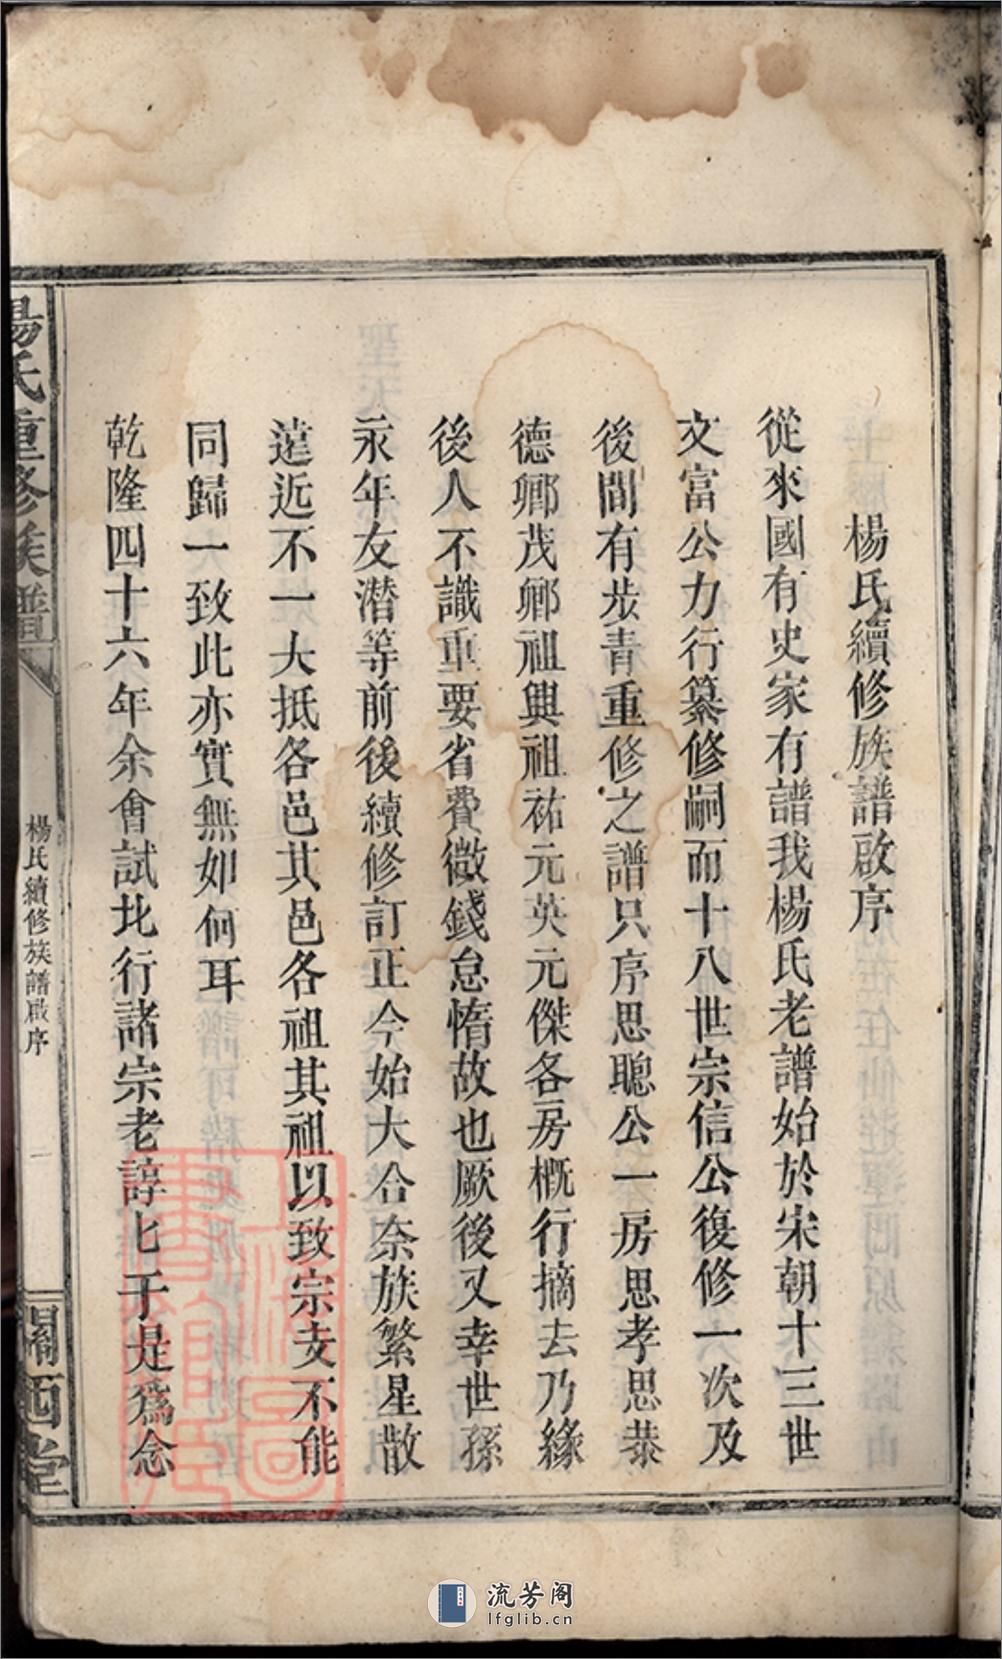 楊氏續修族譜啟序
從來國有史家有譜我楊氏老譜始於宋朝十三世
文富公力行纂修嗣而十八世宗信公復修一次及
後間有步青重修之譜只序思聰公一房思孝思恭
德鄉茂鄉祖興祖祐元英元傑各房概行摘去乃緣
後人不識重要省費微錢怠惰故也厥後又幸世孫
永年友潜等前後續修訂正今始大合奈族繁星散
遠近不一大抵各邑其邑各祖其祖以致宗支不能
同歸一致此亦實無如何耳
乾隆四十六年余會試北行諸宗老諄匕于是為念
楊氏重修族譜
楊氏續修族譜啟序
一
關西堂
上海圖書館藏
流芳阁
lfglib.cn